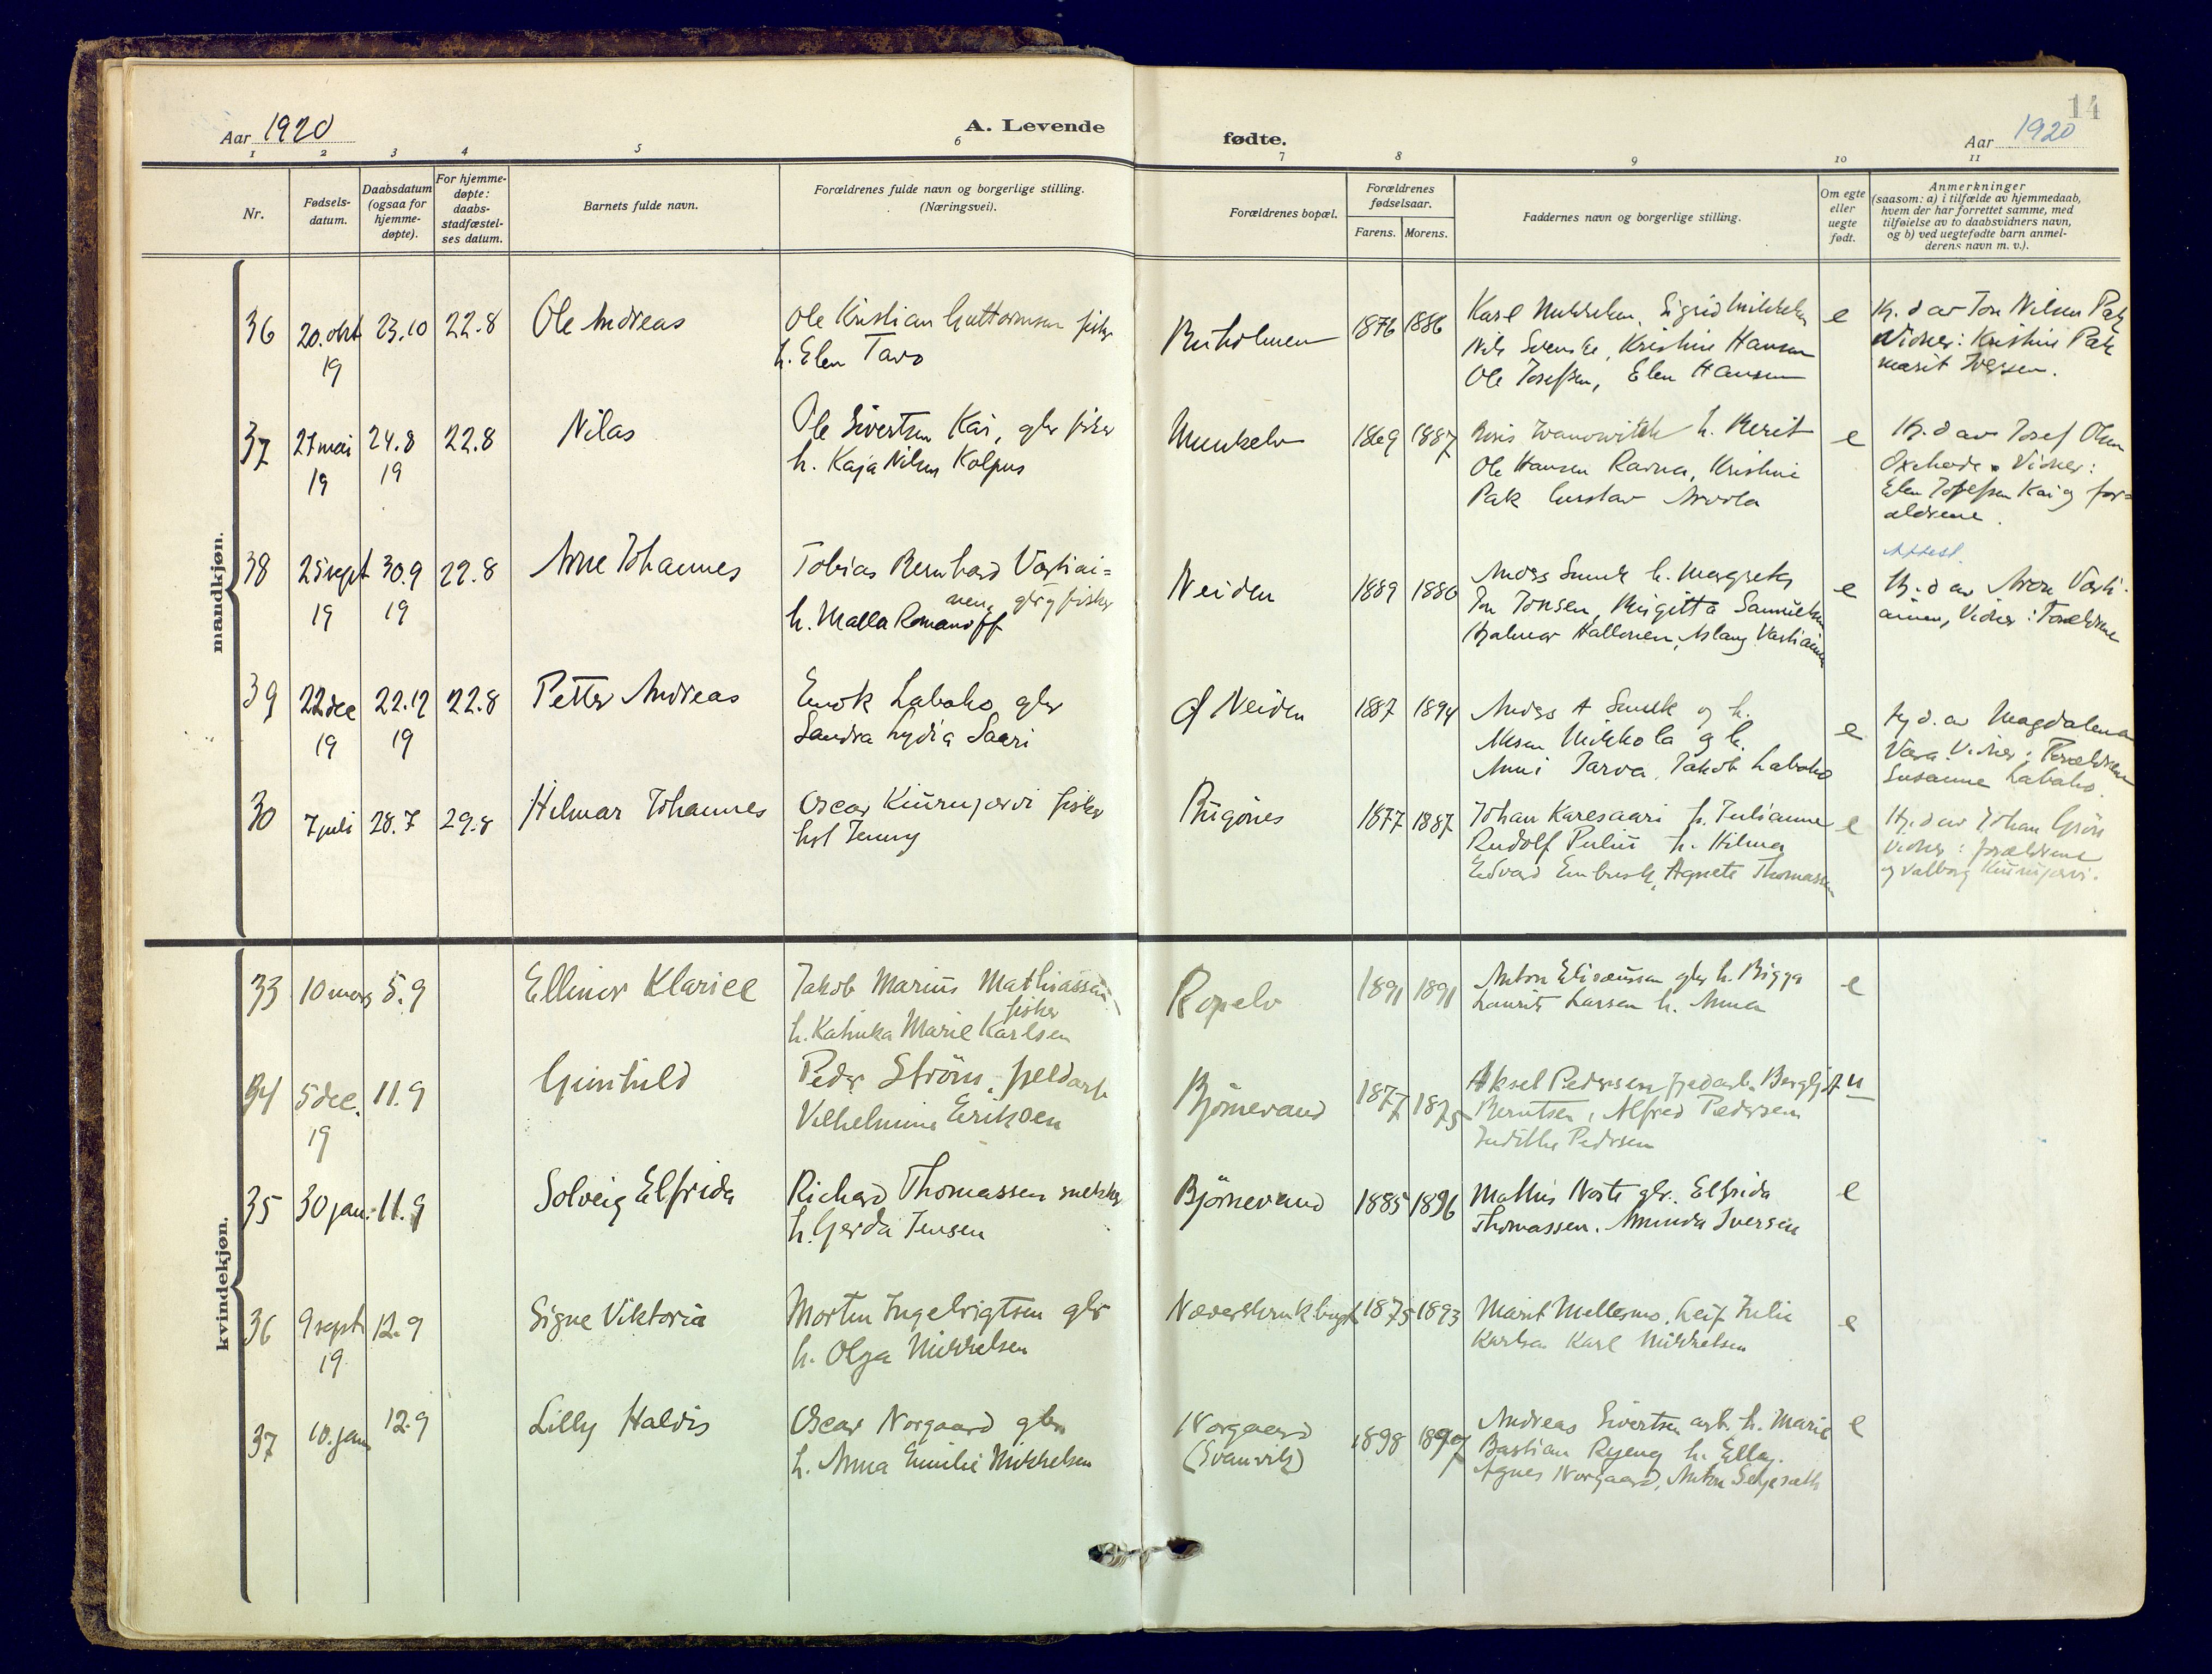 14
Aar 1920
A. Levende fødte.
Aar 1920
1 2 3 4 5 6 7 8 9 10 11
Nr.
Fødsels-
datum.
Daabsdatum
(ogsaa for
hjemme-
døpte).
For hjemme-
døpte:
daabs-
stadfæstel-
ses datum.
Barnets fulde navn.
Forældrenes fulde navn og borgerlige stilling.
(Næringsvei).
Forældrenes bopæl.
Forældrenes
fødselsaar.
Farens. Morens.
Faddernes navn og borgerlige stilling.
Om egte
eller
uegte
født.
Anmerkninger
(saasom: a) i tilfælde av hjemmedaab,
hvem der har forrettet samme, med
tilføielse av to daabsvidners navn,
og b) ved uegtefødte barn anmel-
derens navn m. v.).
mandkjøn.
36
20. okt
19
23.10
22.8
Ole Andreas
Ole Kristian Guttormsen fisker
h. Elen Tavo
Buholmen
1876
1886
Karl Mikkelsen, Sigrid Mikkelsen
Nils Svenske, Kristine Hansen
Ole Josefsen, Elen Hansen
e
Hj. d av Jon Nilsen Pak
Vidner: Kristine Pak
Marit Iversen.
37
27 mai
19
24.8
19
22.8
Nilas
Ole Sivertsen Kai, gbr fisker
h. Kaja Nilsen Kolpus
Munkelv
1869
1887
Boris Ivanowitsh h. Berit
Ole Hansen Ravna, Kristine
Pak Gustav Arvola
e
Hj. d av Josef Olsen
Oxehode. Vidner:
Elen Josefsen Kai og for=
ældrene.
38
25 sept
19
30.9
19
22.8
Arne Johannes
Tobias Bernhard Vartiai=
nen, gbr og fisker
h. Malla Romanoff
Neiden
1889
1880
Anders Smuk h. Margrete
Jon Jonsen, Birgitta Samuelsen
Hjalmar Hallonen, Aslaug Vartiainen
e
Attest.
Hj. d av Aron Varti-
ainen, Vidner: Forældrene
39
22 dec
19
22.12
19
22.8
Petter Andreas
Enok Labaho gbr
Sandra Lydia Saari
Neiden
1887
1894
Anders A Smuk og h.
Mikkola og h.
Anni Jarva, Jakob Labaho
e
Hj d. av Magdalena
Vara. Vidner: Forældrene
Susanne Labaho.
30
7 juli
28.7
29.8
Hilmar Johannes
Oscar Kiurujarvi fisker
hst Jenny
Bugönes
1877
1887
Johan Karesaari h. Julianne
Rudolf h. Hilma
Edvard Embusk, Agnete Thomassen
e
Hj. d av Johan Grön
Vidner: forældrene
og Valborg Kiurujarvi.
kvindekjøn.
33
10 mars
5.9
Ellinor Klarice
Jakob Marius Mathiassen
fisker
h. Katinka Marie Karlsen
Ropelv
1891
1891
Anton Eliseussen gbr h. Bigga
Laurits Larsen h. Anna
e
34
5 dec.
19
11.9
Gunhild
Peder Ström, feldarb
Vilhelmine Eriksen
Björnevand
1877
1875
Aksel Pedersen Bergljot
Berntsen, Alfred Pedersen
Judithe Pedersen
u
35
30 jan.
11.9
Solveig Elfrida
Richard Thomassen snekker
h. Gerda Jensen
Björnevand
1885
1896
Mathis Norti gbr. Elfrida
Thomassen. Amunda Iversen
e
36
9 sept
19
12.9
Signe Viktoria
Morten Ingebrigtsen gbr
h. Olga Mikkelsen
1875
1893
Marit Mellesmo, Leif Julie
Karlsen Karl Mikkelsen
e
37
10. jan
12.9
Lilly Haldis
Oscar Norgaard gbr
h. Anna Emilie Mikkelsen
Norgaard
(Svanvik)
1898
1897
Andreas Sivertsen arb. h. Marie
Bastian Ryeng h. Ella,
Agnes Norgaard, Anton
e